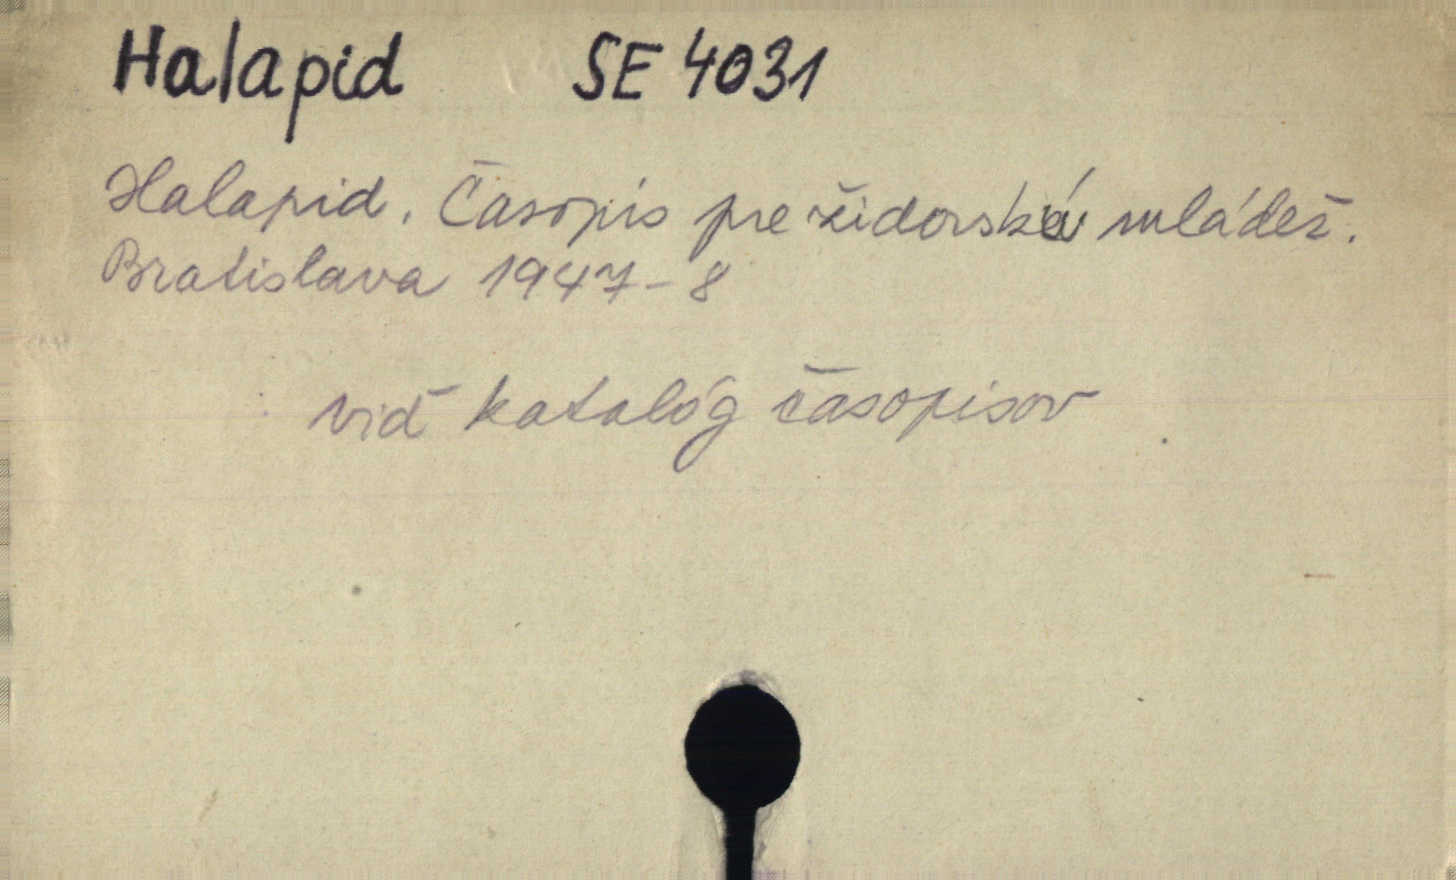 Halapid SE 4031
Halapid. Časopis pre židovskú mládež.
Bratislava 1947-8
viď katalóg časopisov